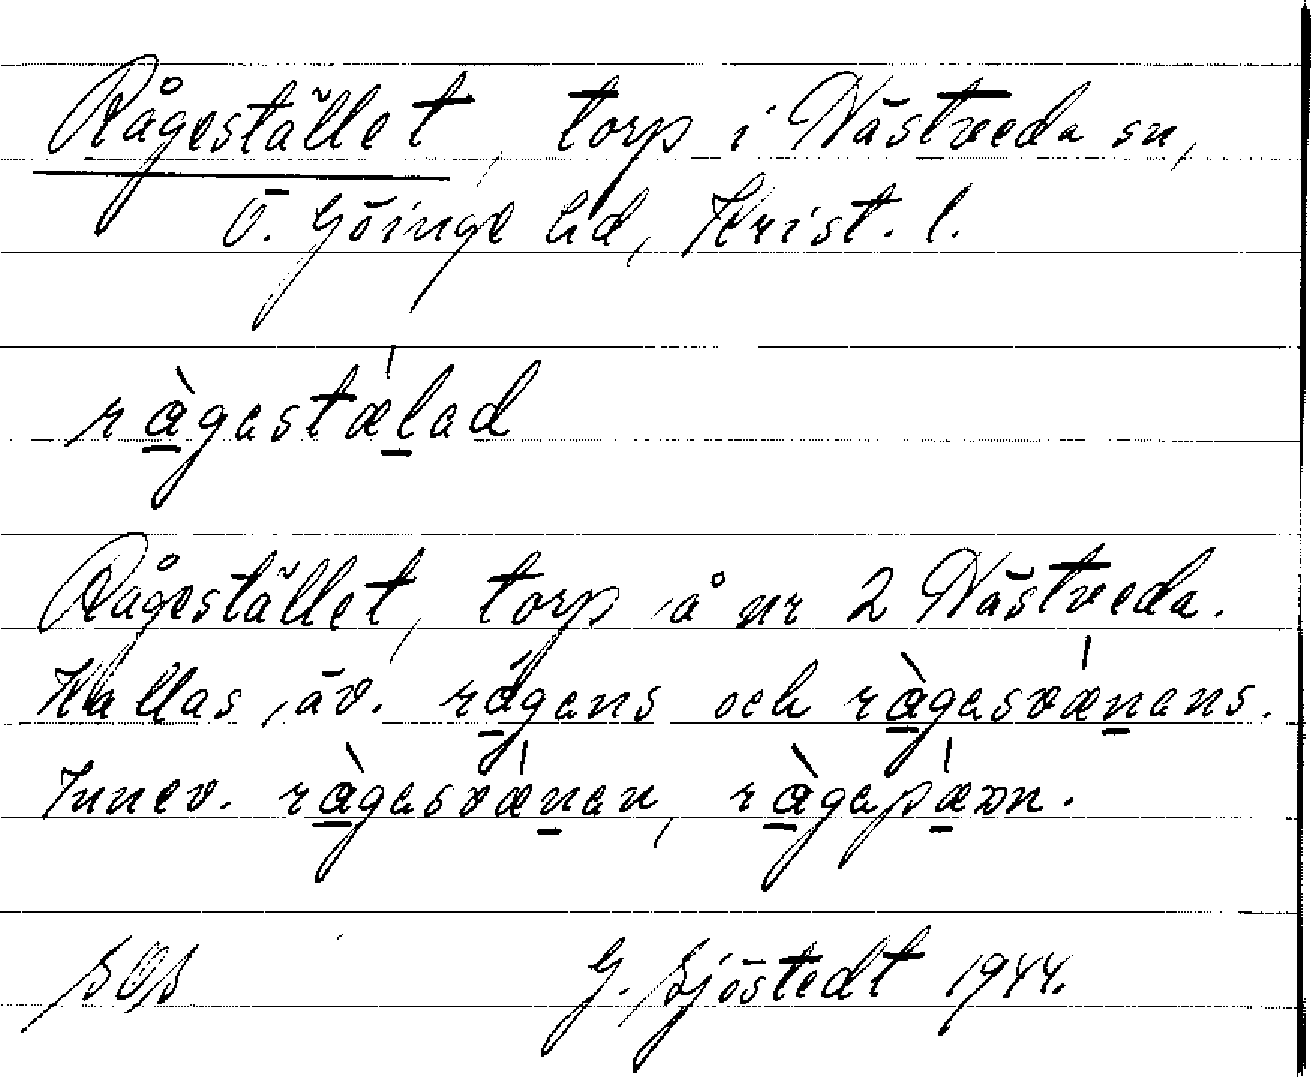 Rågestället, torp i Nästveda sn,
Ö. Göinge hd, Krist. l.
ràgestælad
Rågestället, torp å nr 2 Nästveda.
Kallas äv. rågens och ràgesvænens.
Innev. ràgesvænen, ràgepæon.
SOS G. Sjöstedt 1944.